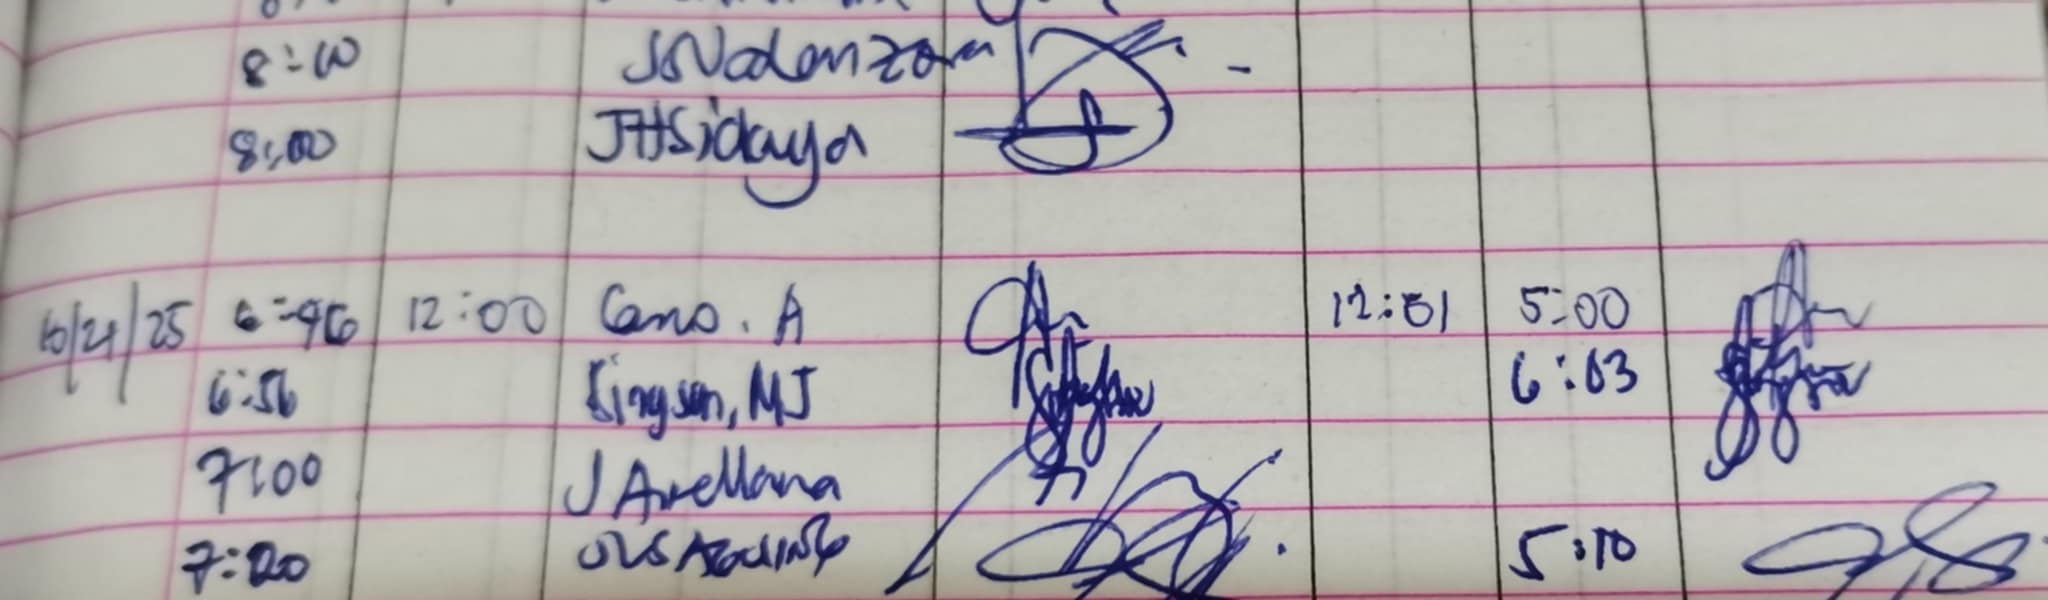 8:00 JSValenzona -
8:00 JHSidaya
10/21/25 6:46 12:00 Cano. A 12:01 5:00
6:56 Kingson, MJ 6:03
7:00 J Arellana
7:20 5:10